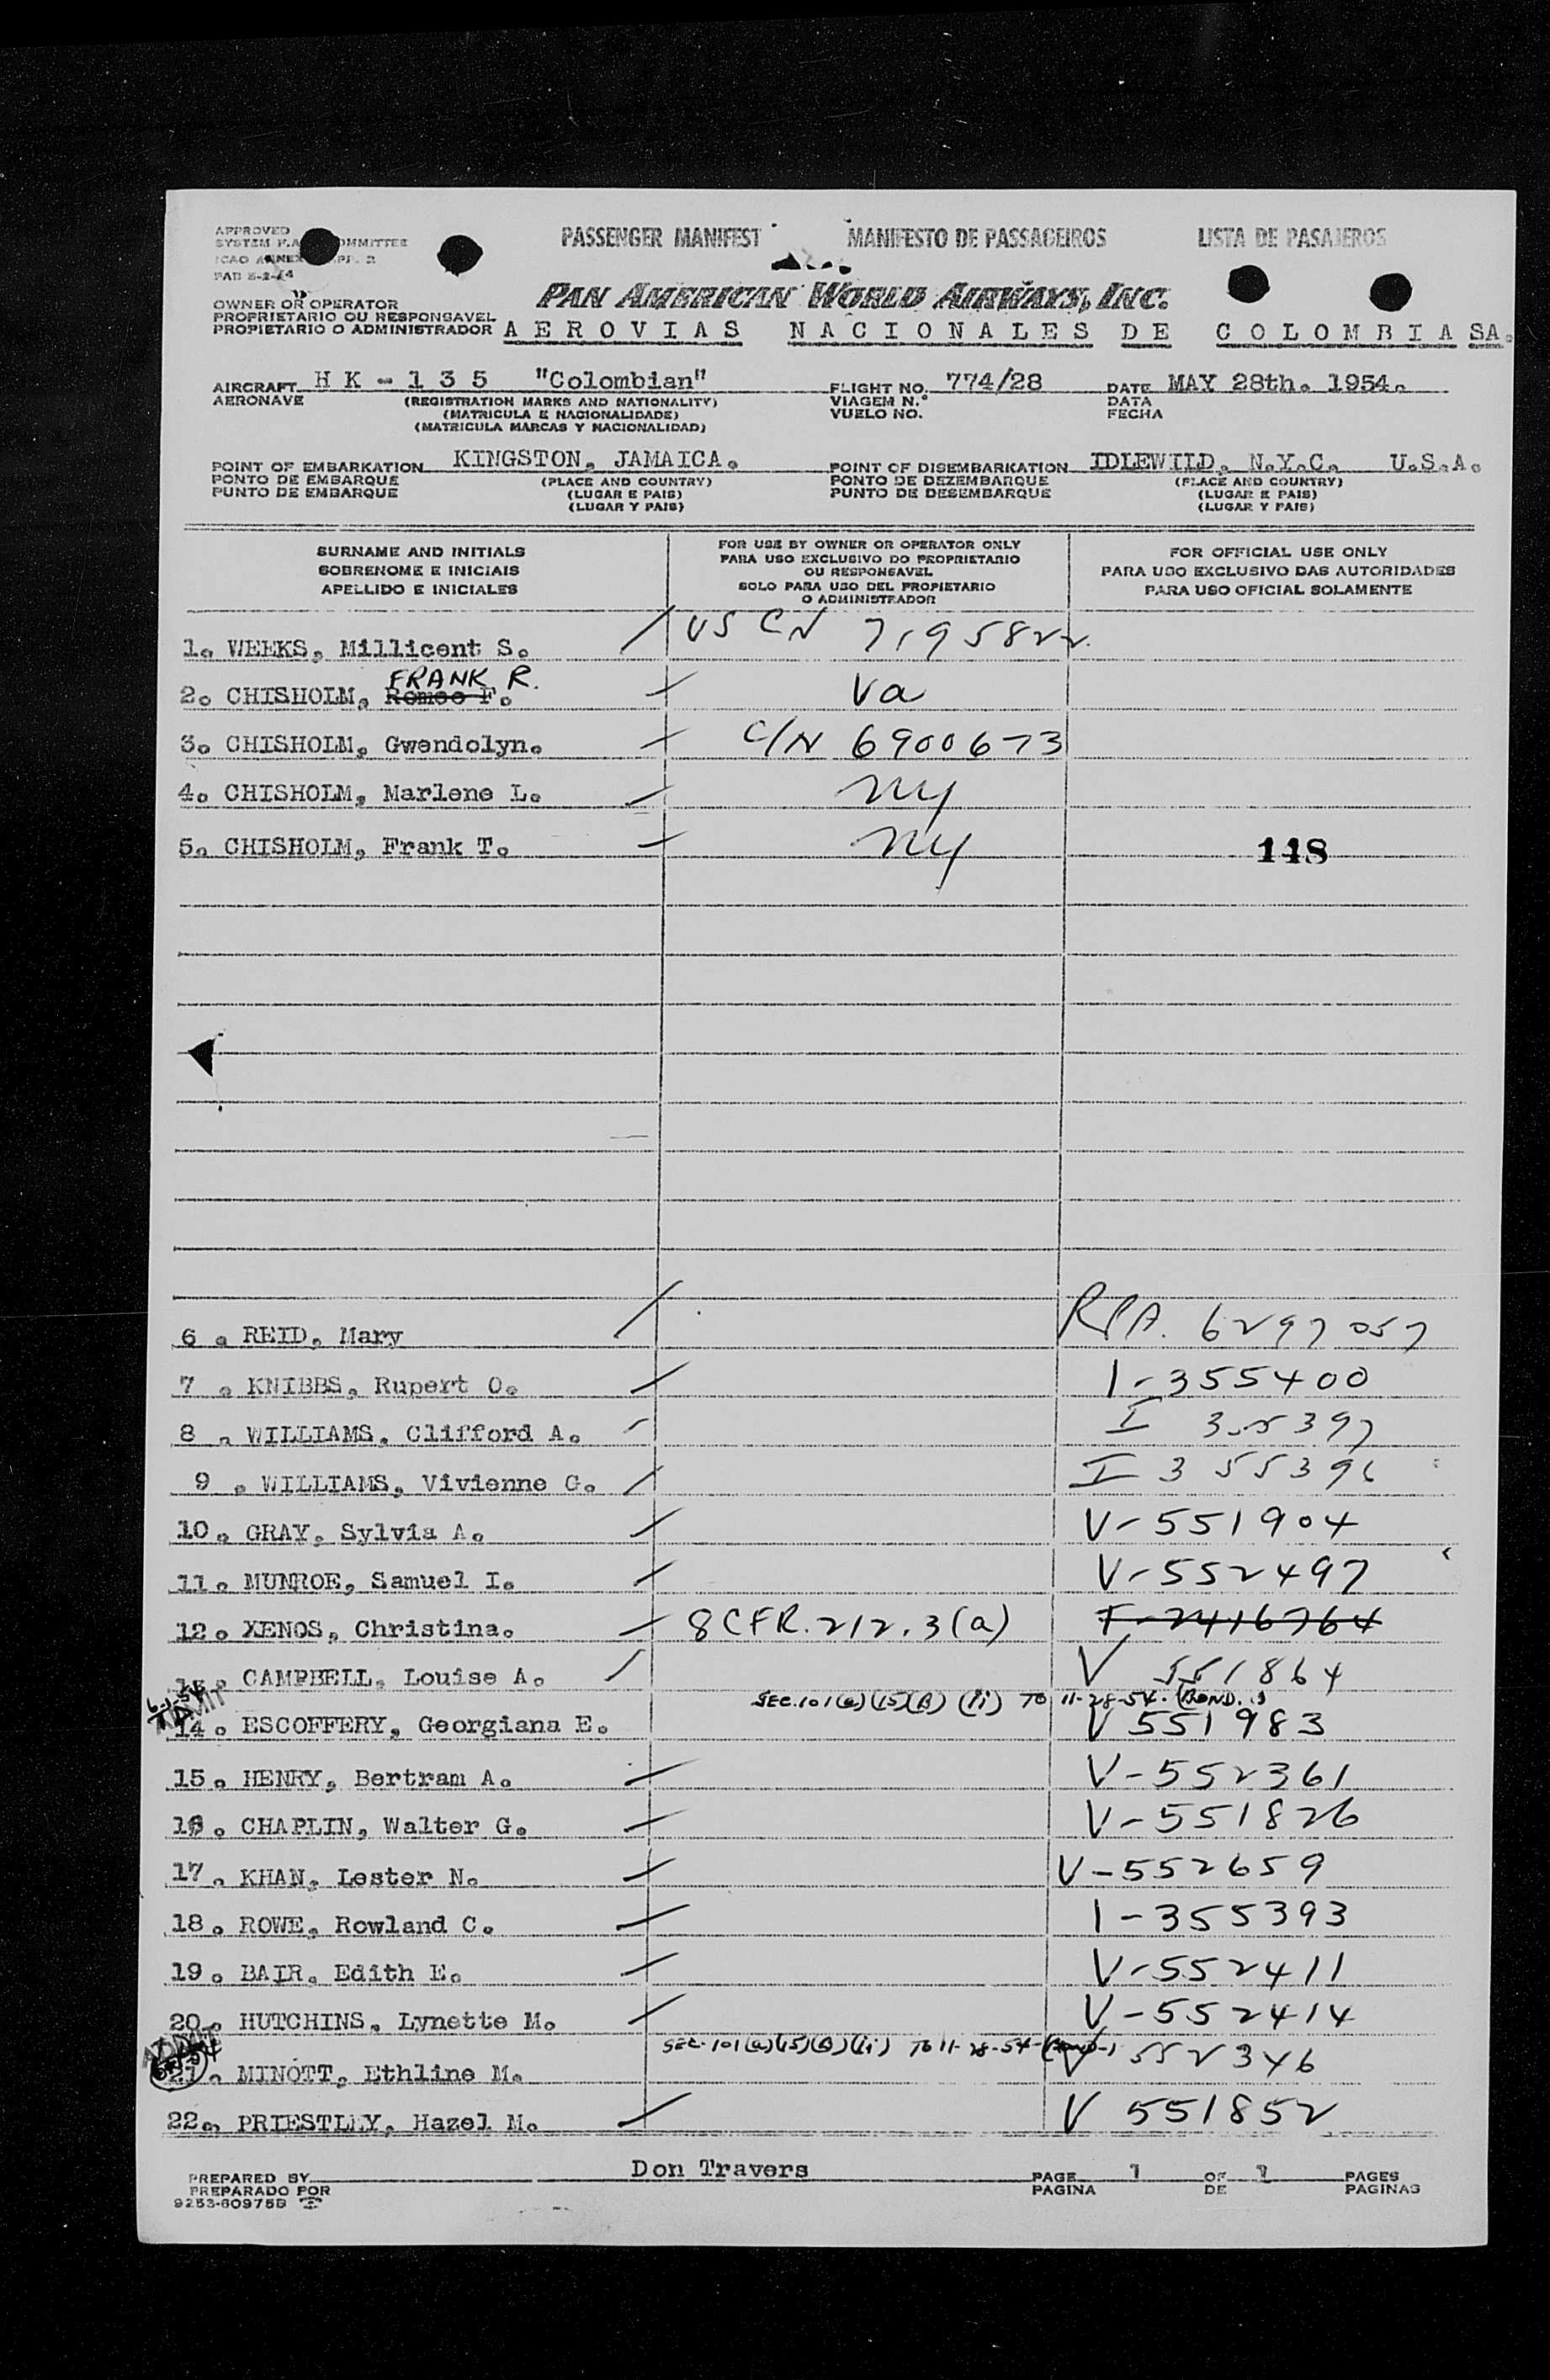 APPROVED PASSENGER MANIFEST MANIFESTO DE PASSAGEIROS LISTA DE PASAJEROS
SYSTEM
ICAO ANNEX
OWNER OR OPERATOR PAN AMERICAN WORLD AIRWAYS, INC.
PROPRIETARIO OU RESPONSAVEL
PROPIETARIO O ADMINISTRADOR AEROVIAS NACIONALES DE COLOMBIA SA.
AIRCRAFT HK-135 "Colombian" FLIGHT NO. 774/28 DATE MAY 28th. 1954.
AERONAVE (REGISTRATION MARKS AND NATIONALITY) VIAGEM N.° DATA
(MATRICULA E NACIONALIDADE) VUELO NO. FECHA
(MATRICULA MARCAS Y NACIONALIDAD)
POINT OF EMBARKATION KINGSTON, JAMAICA. POINT OF DISEMBARKATION IDLEWILD, N.Y.C. U.S.A.
PONTO DE EMBARQUE (PLACE AND COUNTRY) PONTO DE DEZEMBARQUE (PLACE AND COUNTRY)
PUNTO DE EMBARQUE (LUGAR E PAIS) PUNTO DE DESEMBARQUE (LUGAR E PAIS)
(LUGAR Y PAIS) (LUGAR Y PAIS)
SURNAME AND INITIALS
SOBRENOME E INICIAIS
APELLIDO E INICIALES
FOR USE BY OWNER OR OPERATOR ONLY
PARA USO EXCLUSIVO DO PROPRIETARIO
OU RESPONSAVEL
SOLO PARA USO DEL PROPIETARIO
O ADMINISTRADOR
FOR OFFICIAL USE ONLY
PARA USO EXCLUSIVO DAS AUTORIDADES
PARA USO OFICIAL SOLAMENTE
1. WEEKS, Millicent S. / US CN 7195822
FRANK R.
2. CHISHOLM, Romeo F. Va
3. CHISHOLM, Gwendolyn. C/N 6900673
4. CHISHOLM, Marlene L. NY
5. CHISHOLM, Frank T. NY 148
6. REID, Mary 6297057
7. KNIBBS, Rupert O. I-355400
8. WILLIAMS, Clifford A. I 355397
9. WILLIAMS, Vivienne G. I 355396
10. GRAY, Sylvia A. V-551904
11. MUNROE, Samuel I. V-552497
12. XENOS, Christina. 8 CFR. 212.3(a) 2416764
CAMPBELL, Louise A. V 551864
6-1-54
ADMIT SEC. 101(a)(15)(B)(ii) TO 11-28-54. (BOND.)
14. ESCOFFERY, Georgiana E. V 551983
15. HENRY, Bertram A. V-552361
16. CHAPLIN, Walter G. V-551826
17. KHAN, Lester N. V-552659
18. ROWE, Rowland C. I-355393
19. BAIR, Edith E. V-552411
20. HUTCHINS, Lynette M. V-552414
ADMIT SEC. 101(a)(15)(B)(ii) TO 11-28-54-
21. MINOTT, Ethline M. V 552346
22. PRIESTLEY, Hazel M. V 551852
PREPARED BY Don Travers PAGE 1 OF 1 PAGES
PREPARADO POR PAGINA DE PAGINAS
9253-60975B